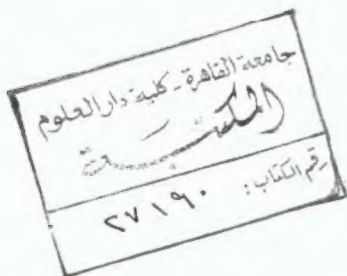 جامعة القاهرة - كلية دار العلوم
المكتبة
رقم الكتاب: ٢٧١٩٠